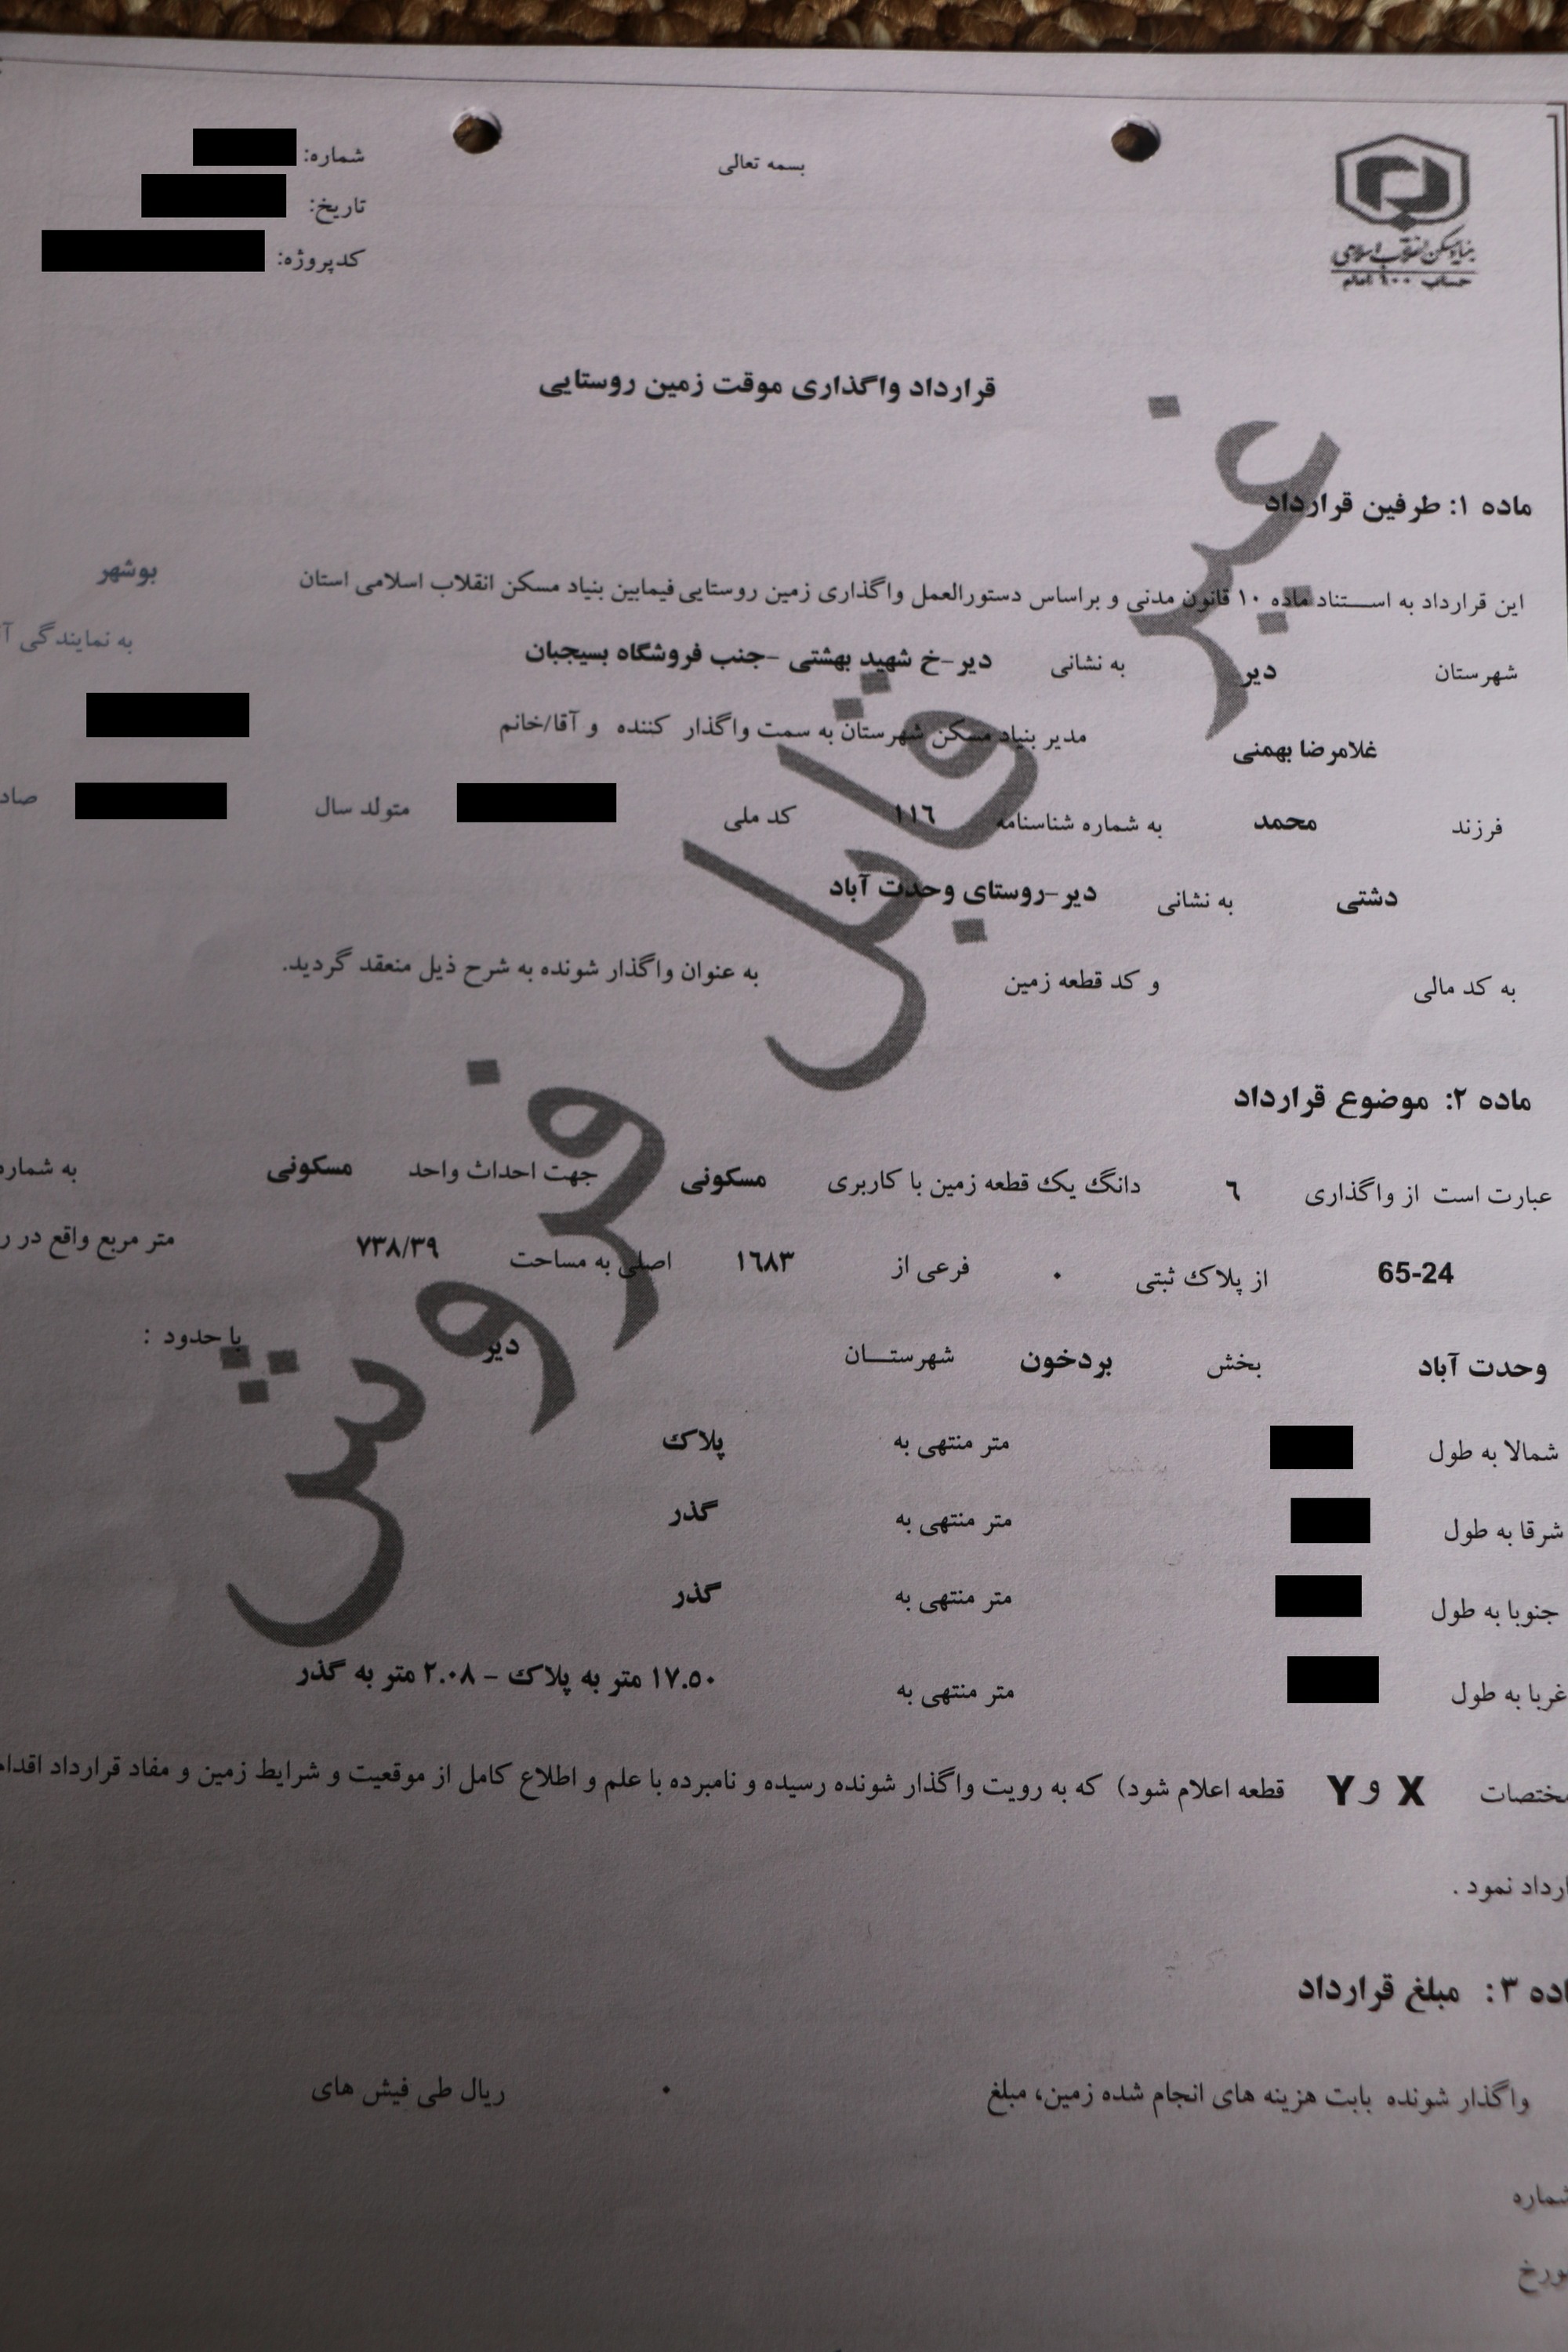 بسمه تعالی
شماره:
تاریخ:
کدپروژه:
بنیاد مسکن انقلاب اسلامی
حساب ۱۰۰ امام
قرارداد واگذاری موقت زمین روستایی
ماده ۱: طرفین قرارداد
این قرارداد به استناد ماده ۱۰ قانون مدنی و براساس دستورالعمل واگذاری زمین روستایی فیمابین بنیاد مسکن انقلاب اسلامی استان بوشهر
شهرستان دیر به نشانی دیر-خ شهید بهشتی -جنب فروشگاه بسیجیان به نمایندگی
غلامرضا بهمنی مدیر بنیاد مسکن شهرستان به سمت واگذار کننده و آقا/خانم
فرزند محمد به شماره شناسنامه ۱۱٦ کد ملی متولد سال
دشتی به نشانی دیر-روستای وحدت آباد
به کد مالی و کد قطعه زمین به عنوان واگذار شونده به شرح ذیل منعقد گردید.
ماده ۲: موضوع قرارداد
عبارت است از واگذاری ٦ دانگ یک قطعه زمین با کاربری مسکونی جهت احداث واحد مسکونی به شماره
65-24 از پلاک ثبتی ۰ فرعی از ۱٦۸۳ اصلی به مساحت ۷۳۸/۳۹ متر مربع واقع در
وحدت آباد بخش بردخون شهرستان دیر با حدود :
شمالا به طول متر منتهی به پلاک
شرقا به طول متر منتهی به گذر
جنوبا به طول متر منتهی به گذر
غربا به طول متر منتهی به ۱۷.۵۰ متر به پلاک - ۲.۰۸ متر به گذر
مختصات X و Y قطعه اعلام شود) که به رویت واگذار شونده رسیده و نامبرده با علم و اطلاع کامل از موقعیت و شرایط زمین و مفاد قرارداد
نمود .
۳: مبلغ قرارداد
واگذار شونده بابت هزینه های انجام شده زمین، مبلغ ۰ ریال طی فیش های
شماره
غیر قابل فروش